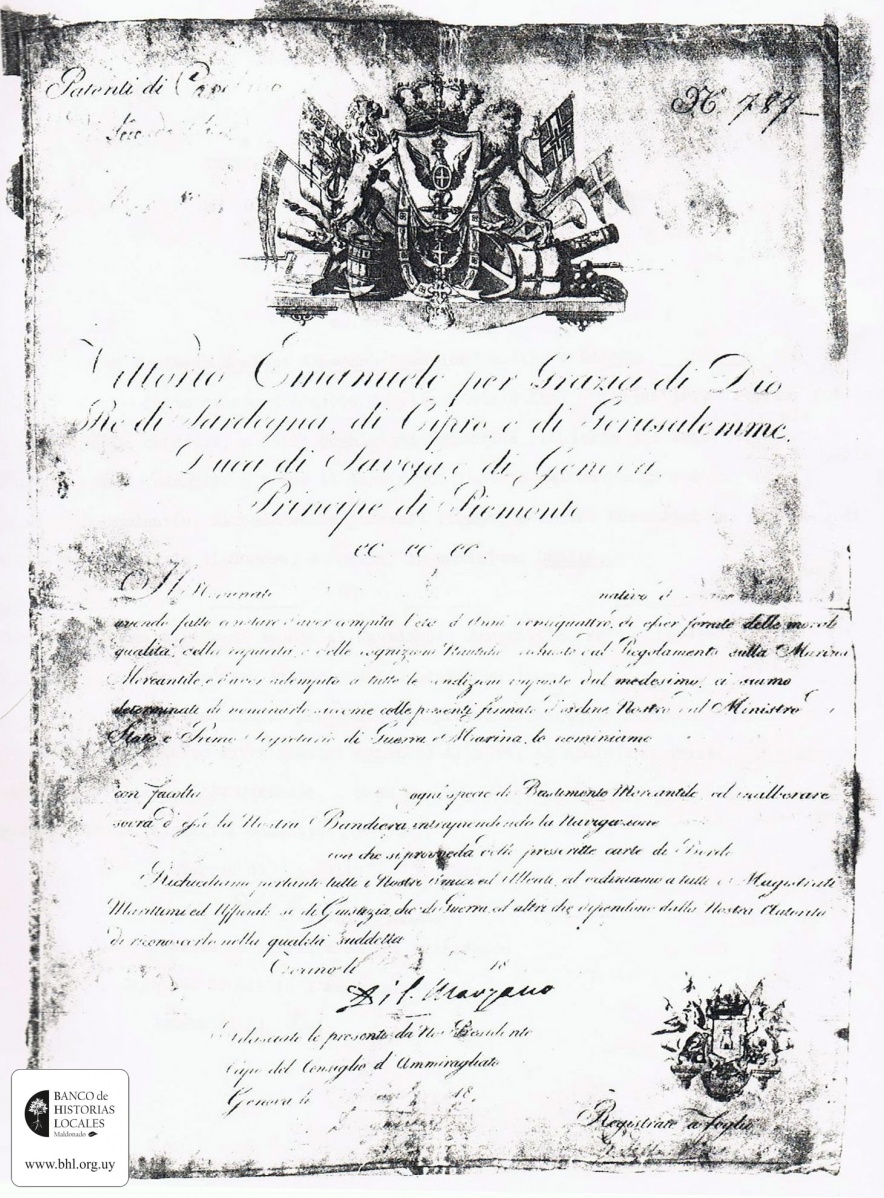 Patenti di
Nº 787
Vittorio Emanuele per Grazia di Dio
Re di Sardegna, di Cipro e di Gerusalemme,
Duca di Savoja e di Genova,
Principe di Piemonte
ec ec ec.
nativo d
avendo fatto constare d'aver compita l'età d'Anni ventiquattro, di esser fornito delle morali
qualità, della capacità, e delle cognizioni Nautiche richieste dal Regolamento sulla Marina
Mercantile, e d'aver adempito a tutte le condizioni imposte dal medesimo, ci siamo
determinati di nominarlo siccome colle presenti firmate d'ordine Nostro dal Ministro
Stato e Primo Segretario di Guerra e Marina, lo nominiamo
con facoltà ogni specie di Bastimento Mercantile, ed inalberare
sovra d'essi la Nostra Bandiera, intraprendendo la Navigazione
con che si provveda delle prescritte carte di Bordo
Richiediamo pertanto tutti i Nostri Amici ed Alleati, ed ordiniamo a tutti i Magistrati
Marittimi ed Uffiziali sì di Giustizia che di Guerra, ed altri che dipendono dalla Nostra Autorità
di riconoscerlo nella qualità suddetta
Torino li 18
Rilasciate le presenti da Noi Presidente
Capo del Consiglio d'Ammiragliato
Genova li 18
Registrato a foglio
BANCO de
HISTORIAS
LOCALES
Maldonado
www.bhl.org.uy